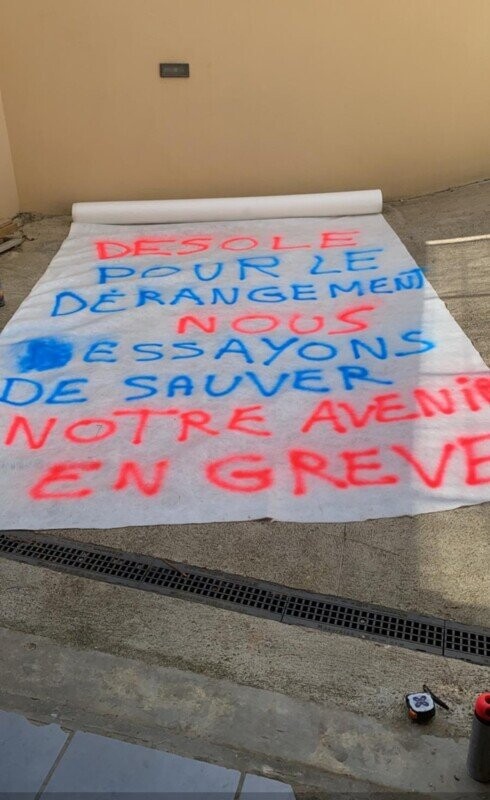 DESOLE
POUR LE
DÉRANGEMENT
NOUS
ESSAYONS
DE SAUVER
NOTRE AVENIR
EN GREVE